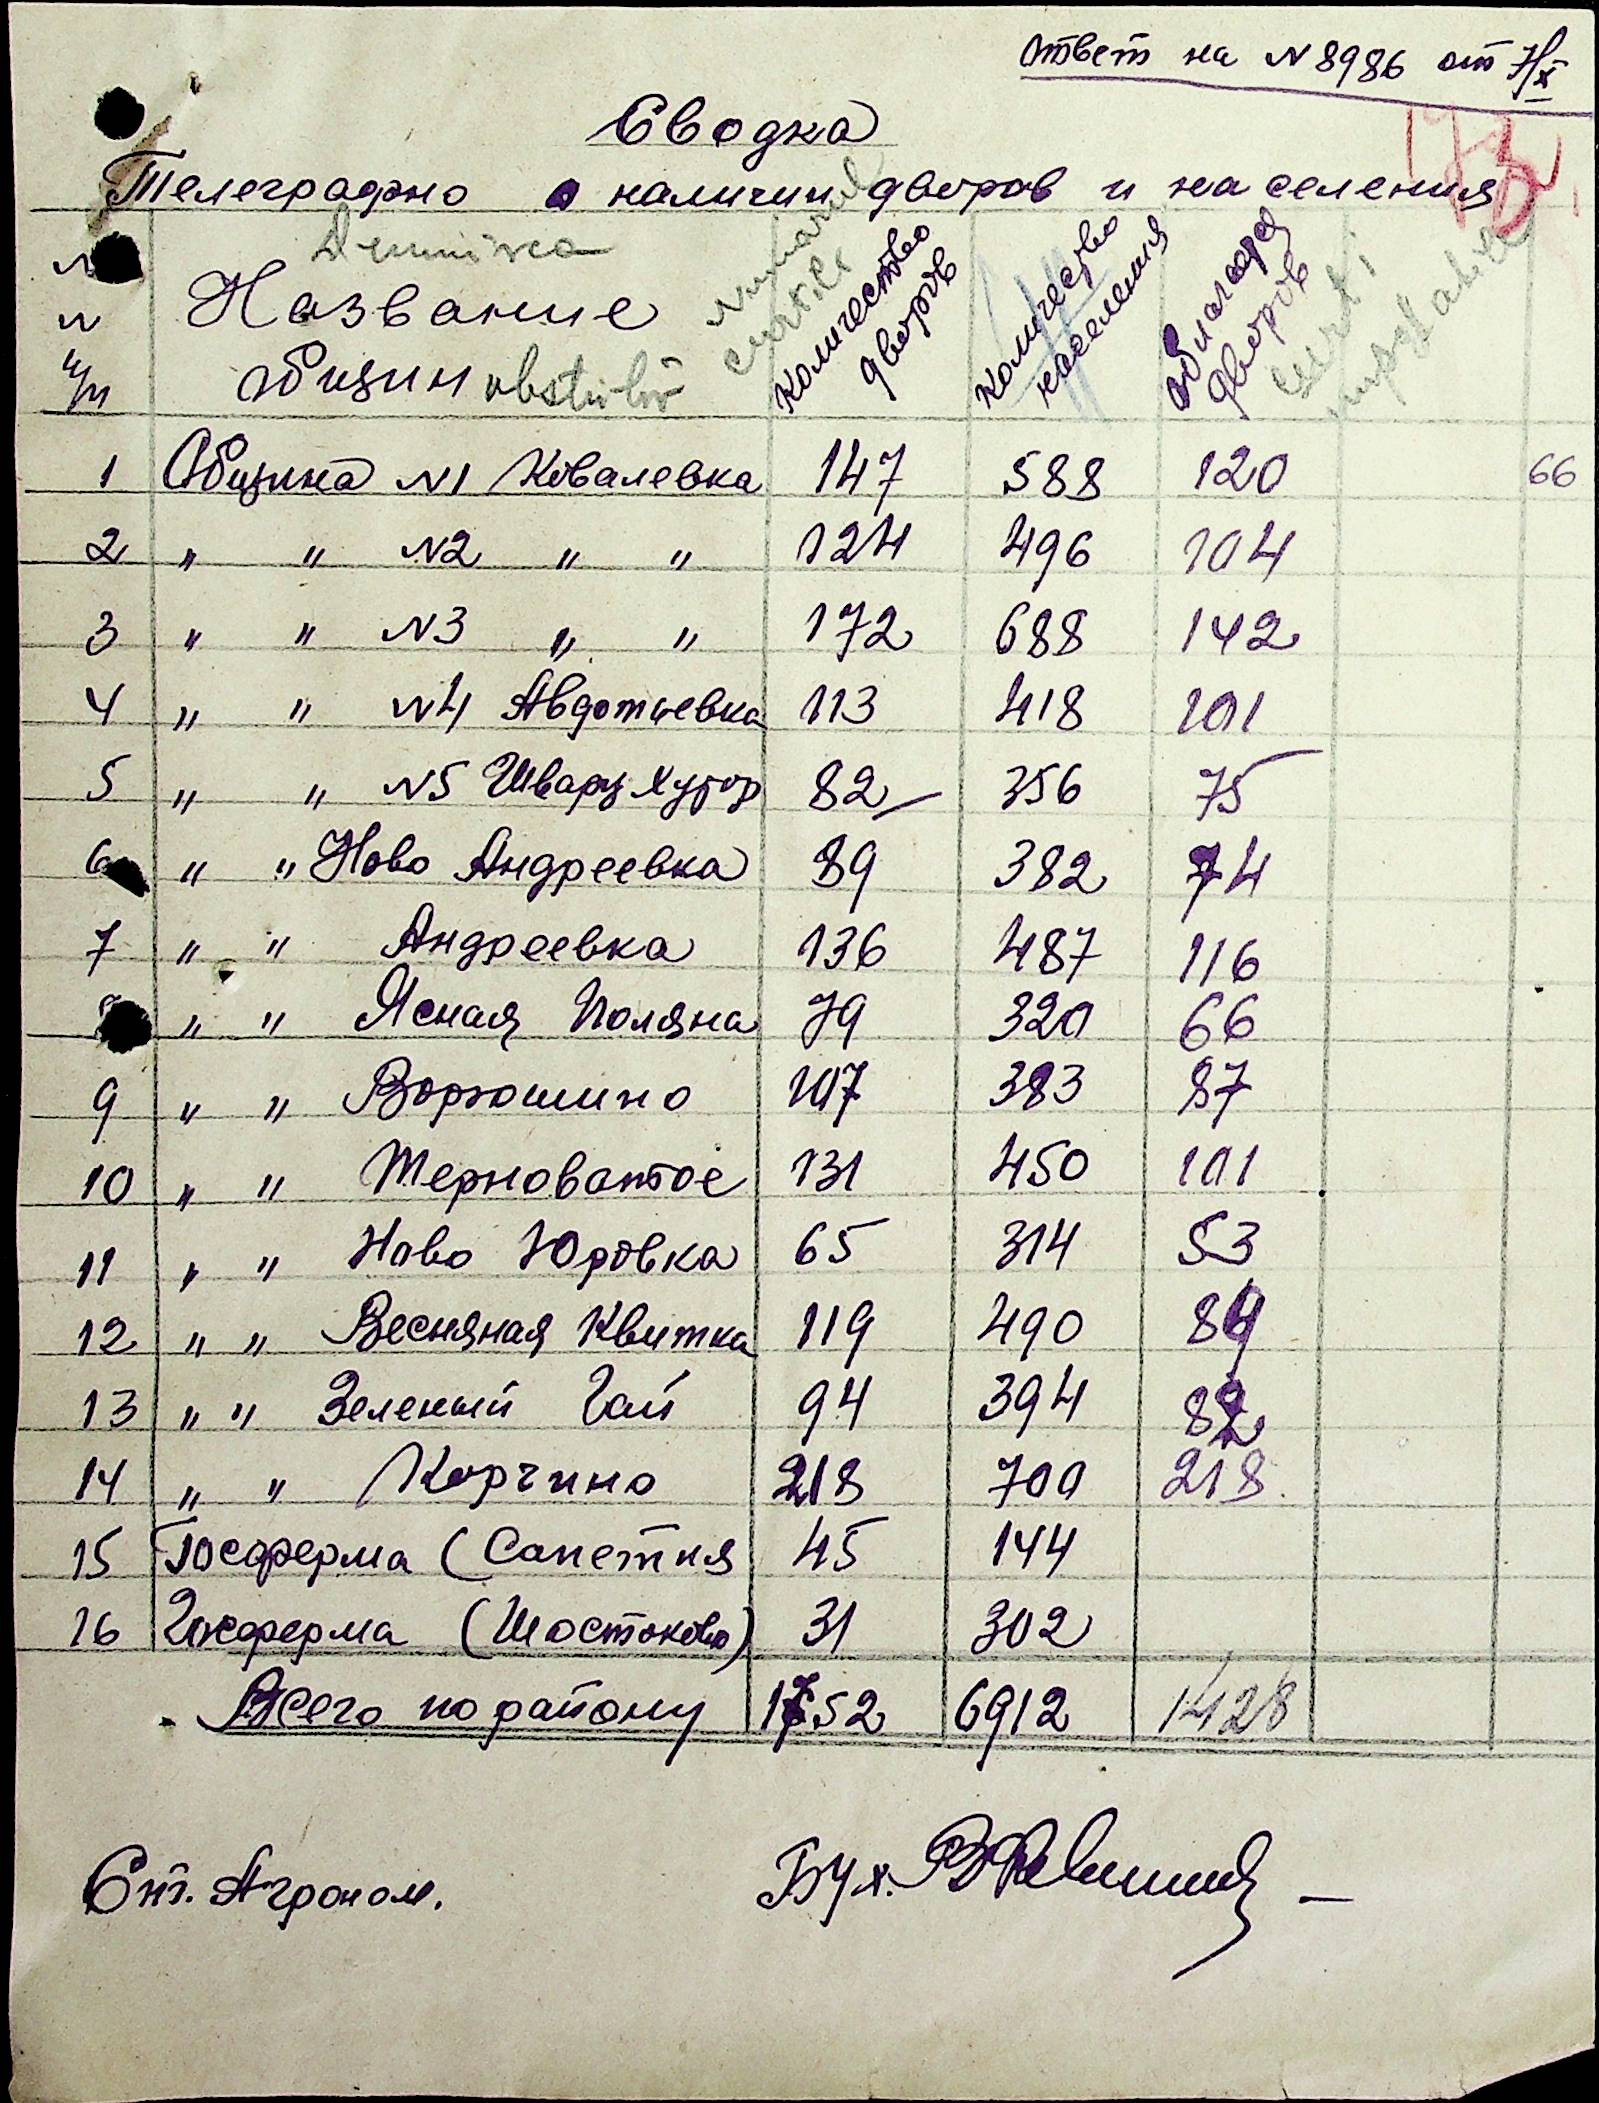 Ответ на N 8986 от 7/X
Сводка
Телеграфно о наличии дворов и населения
Denumirea
Название
общин obștiilor
Numărul curților
Количество дворов
Количество населения
Облагаем дворов
curți impozabile
п/п
1 Община N1 Ковалевка 147 588 120 66
2 " " N2 " " 124 496 104
3 " " N3 " " 172 688 142
4 " " N4 Авдотьевка 113 418 101
5 " " N5 Шварц Хутор 82 356 75
6 " " Ново Андреевка 89 382 74
7 " " Андреевка 136 487 116
8 " " Ясная Поляна 79 320 66
9 " " Ворошино 107 383 87
10 " " Терноватое 131 450 101
11 " " Ново Юровка 65 314 53
12 " " Весняная Квитка 119 490 89
13 " " Зеленый Гай 94 394 82
14 " " Корчино 218 700 218
15 Госферма (Сапетня 45 144
16 Госферма (Шостаково) 31 302
Всего по району 1752 6912 1428
Ст. Агроном. Бух.